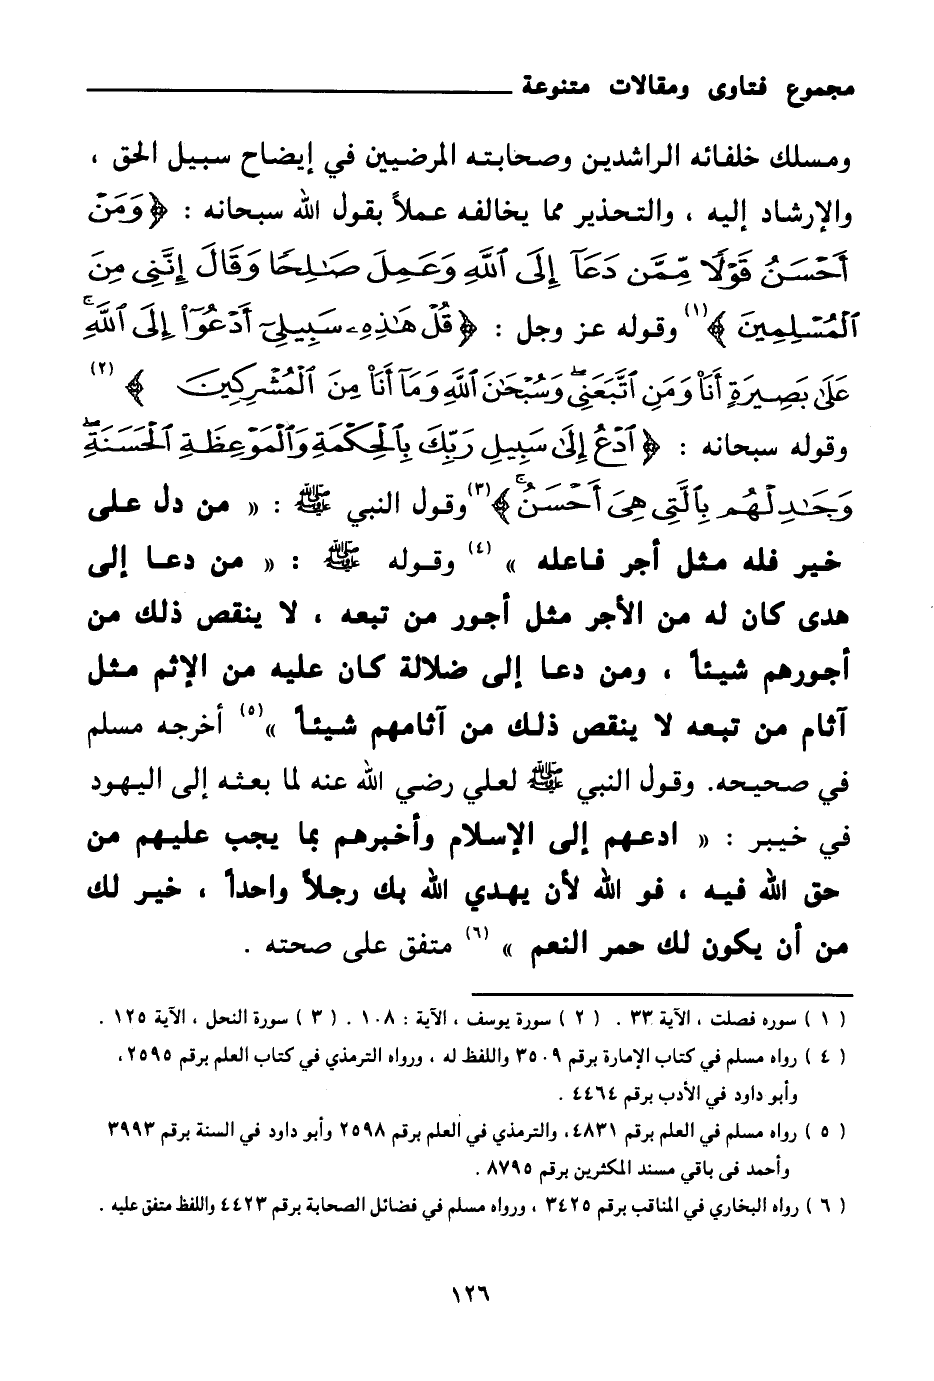 مجموع فتاوى ومقالات متنوعة
ومسلك خلفائه الراشدين وصحابته المرضيين في إيضاح سبيل الحق ،
والإرشاد إليه ، والتحذير مما يخالفه عملاً بقول الله سبحانه : ﴿ وَمَنْ
أَحْسَنُ قَوْلًا مِّمَّن دَعَآ إِلَى ٱللَّهِ وَعَمِلَ صَـٰلِحًا وَقَالَ إِنَّنِى مِنَ
ٱلْمُسْلِمِينَ ﴾(١) وقوله عز وجل : ﴿ قُلْ هَـٰذِهِۦ سَبِيلِىٓ أَدْعُوٓا۟ إِلَى ٱللَّهِ ۚ
عَلَىٰ بَصِيرَةٍ أَنَا۠ وَمَنِ ٱتَّبَعَنِى ۖ وَسُبْحَـٰنَ ٱللَّهِ وَمَآ أَنَا۠ مِنَ ٱلْمُشْرِكِينَ ﴾ (٢)
وقوله سبحانه : ﴿ ٱدْعُ إِلَىٰ سَبِيلِ رَبِّكَ بِٱلْحِكْمَةِ وَٱلْمَوْعِظَةِ ٱلْحَسَنَةِ ۖ
وَجَـٰدِلْهُم بِٱلَّتِى هِىَ أَحْسَنُ ۚ ﴾(٣) وقول النبي ﷺ : « من دل على
خير فله مثل أجر فاعله » (٤) وقوله ﷺ : « من دعا إلى
هدى كان له من الأجر مثل أجور من تبعه ، لا ينقص ذلك من
أجورهم شيئاً ، ومن دعا إلى ضلالة كان عليه من الإثم مثل
آثام من تبعه لا ينقص ذلك من آثامهم شيئاً »(٥) أخرجه مسلم
في صحيحه. وقول النبي ﷺ لعلي رضي الله عنه لما بعثه إلى اليهود
في خيبر : « ادعهم إلى الإسلام وأخبرهم بما يجب عليهم من
حق الله فيه ، فو الله لأن يهدي الله بك رجلاً واحداً ، خير لك
من أن يكون لك حمر النعم » (٦) متفق على صحته .
( ١ ) سوره فصلت ، الآية ٣٣ . ( ٢ ) سورة يوسف ، الآية : ١٠٨ . ( ٣ ) سورة النحل ، الآية ١٢٥ .
( ٤ ) رواه مسلم في كتاب الإمارة برقم ٣٥٠٩ واللفظ له ، ورواه الترمذي في كتاب العلم برقم ٢٥٩٥ ،
وأبو داود في الأدب برقم ٤٤٦٤ .
( ٥ ) رواه مسلم في العلم برقم ٤٨٣١ ، والترمذي في العلم برقم ٢٥٩٨ وأبو داود في السنة برقم ٣٩٩٣
وأحمد فى باقي مسند المكثرين برقم ٨٧٩٥ .
( ٦ ) رواه البخاري في المناقب برقم ٣٤٢٥ ، ورواه مسلم في فضائل الصحابة برقم ٤٤٢٣ واللفظ متفق عليه .
١٢٦